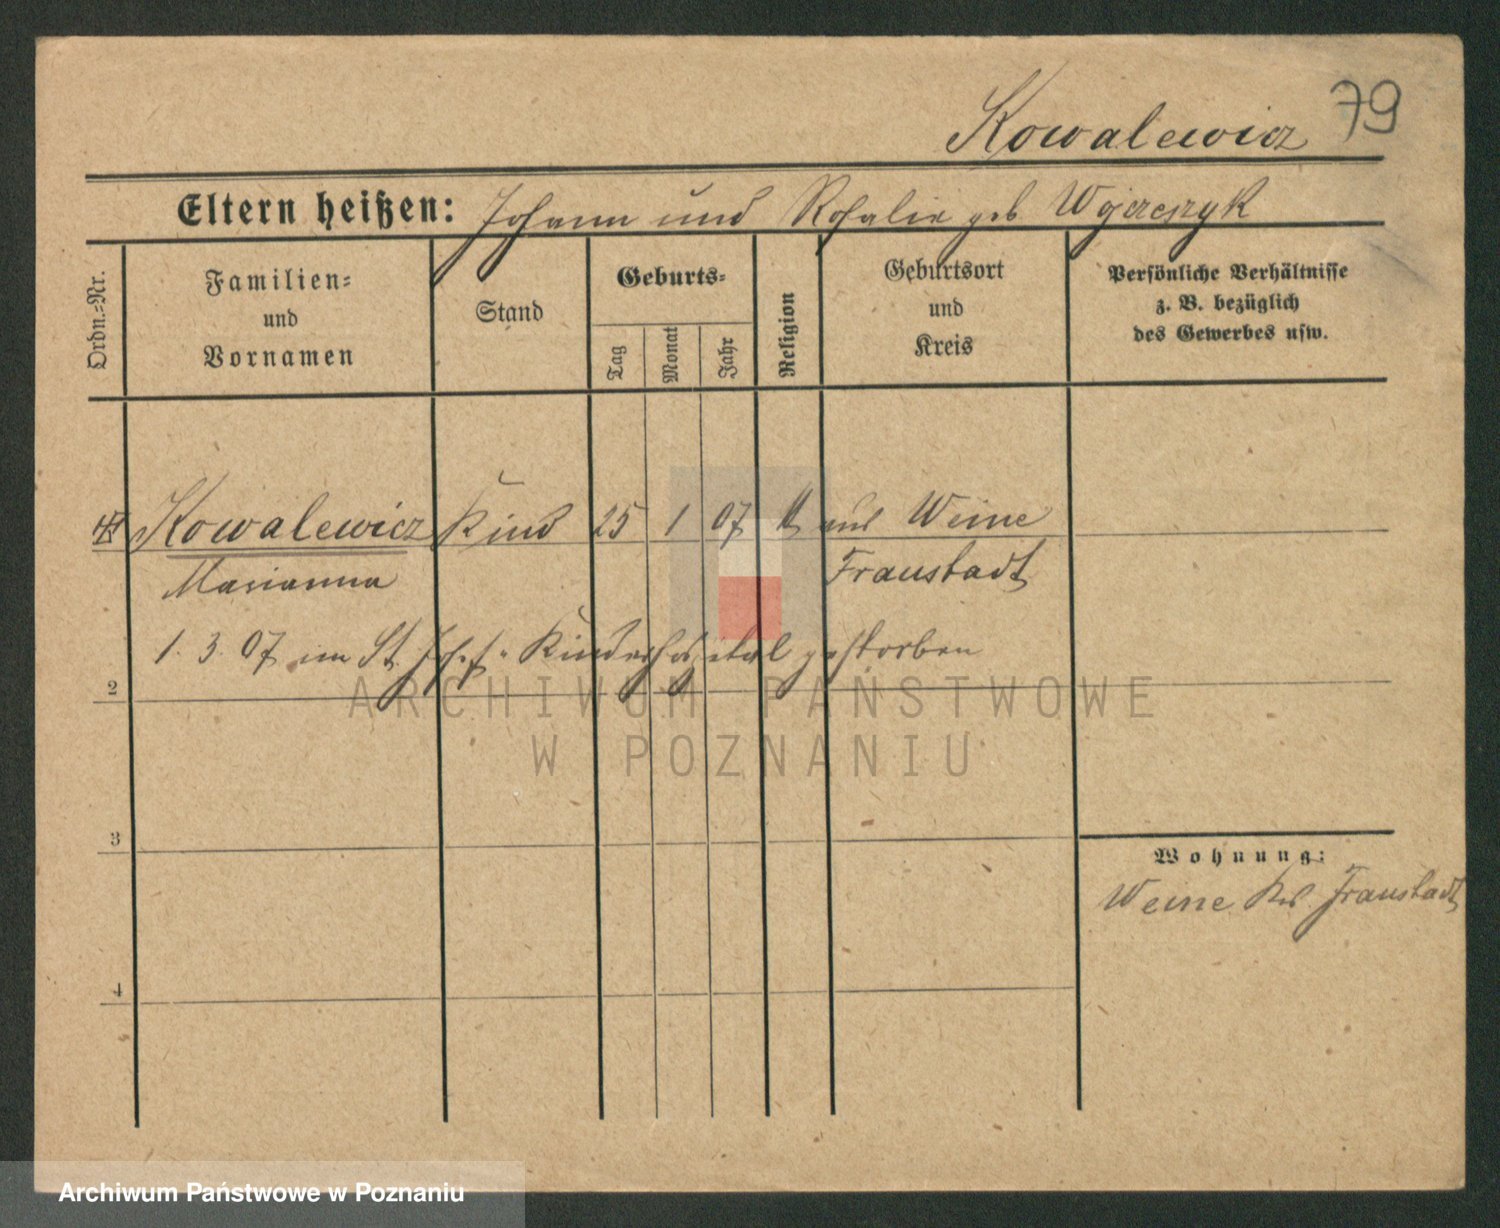 79
Kowalewicz
Eltern heißen: Johann und Rosalie geb
Ordn.=Nr.
Familien=
und
Vornamen
Stand
Geburts=
Tag
Monat
Jahr
Religion
Geburtsort
und
Kreis
Persönliche Verhältnisse
z. B. bezüglich
des Gewerbes usw.
Kowalewicz Kind 25 1 07 aus Weine
Marianna Fraustadt
1. 3. 07 im St. Josef. Kinderhospital gestorben
2
3
4
Wohnung:
Weine Krs. Fraustadt
ARCHIWUM PAŃSTWOWE
W POZNANIU
Archiwum Państwowe w Poznaniu